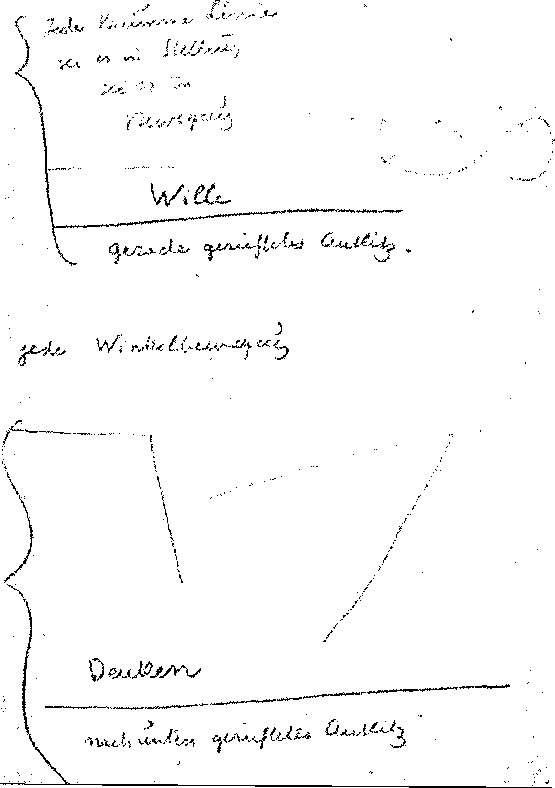 Jede krumme Linie
sei es in Stellung,
sei es in
Bewegung
Wille
gerade gerichtetes Antlitz.
jede Winkelbewegung
Denken
nach unten gerichtetes Antlitz